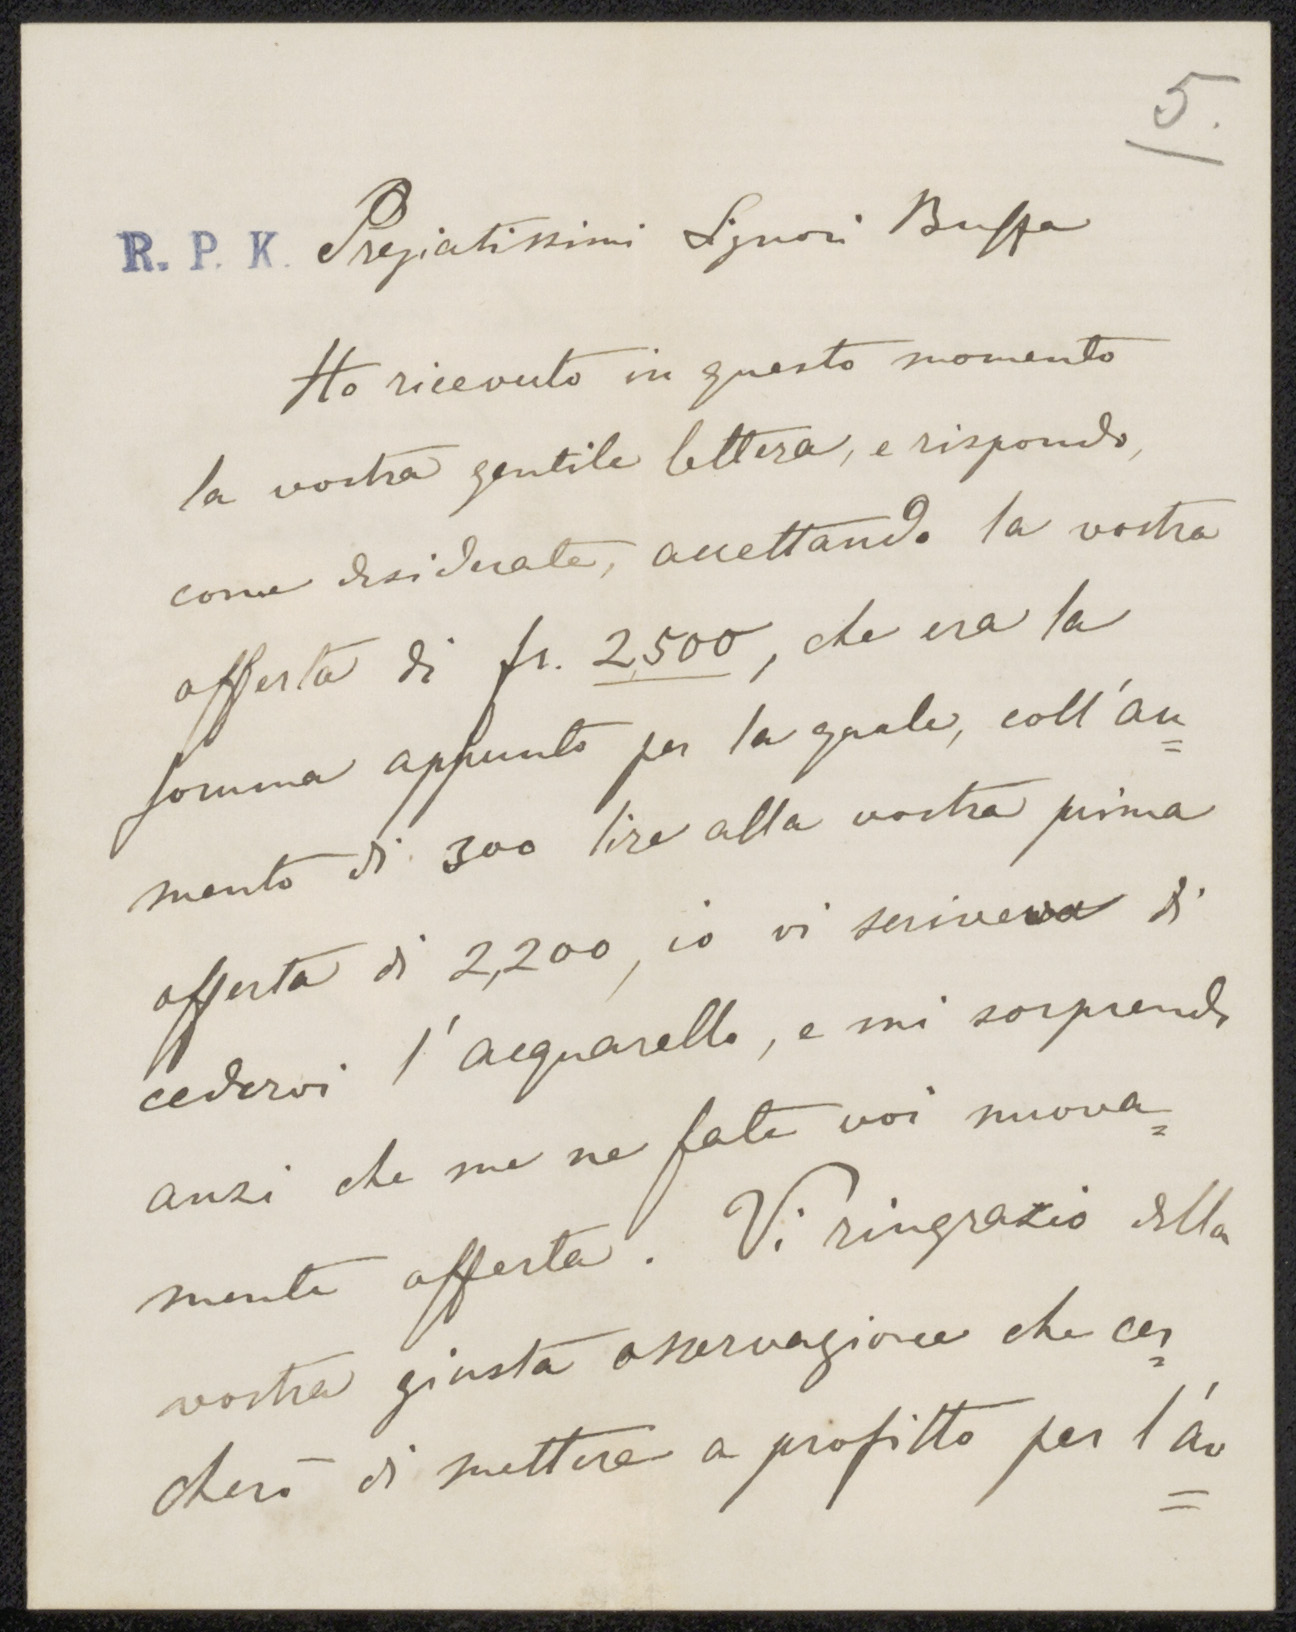 5.
R. P. K. Pregiatissimi Signori Buffa
Ho ricevuto in questo momento
la vostra gentile lettera, e rispondo,
come desiderate, accettando la vostra
offerta di fr. 2,500, che era la
somma appunto per la quale, coll'au=
mento di 300 lire alla vostra prima
offerta di 2,200, io vi scriveva di
cedervi l'acquarello, e mi sorprendo
anzi che me ne fate voi nuova=
mente offerta. Vi ringrazio della
vostra giusta osservazione che cer=
cherò di mettere a profitto per l'av=